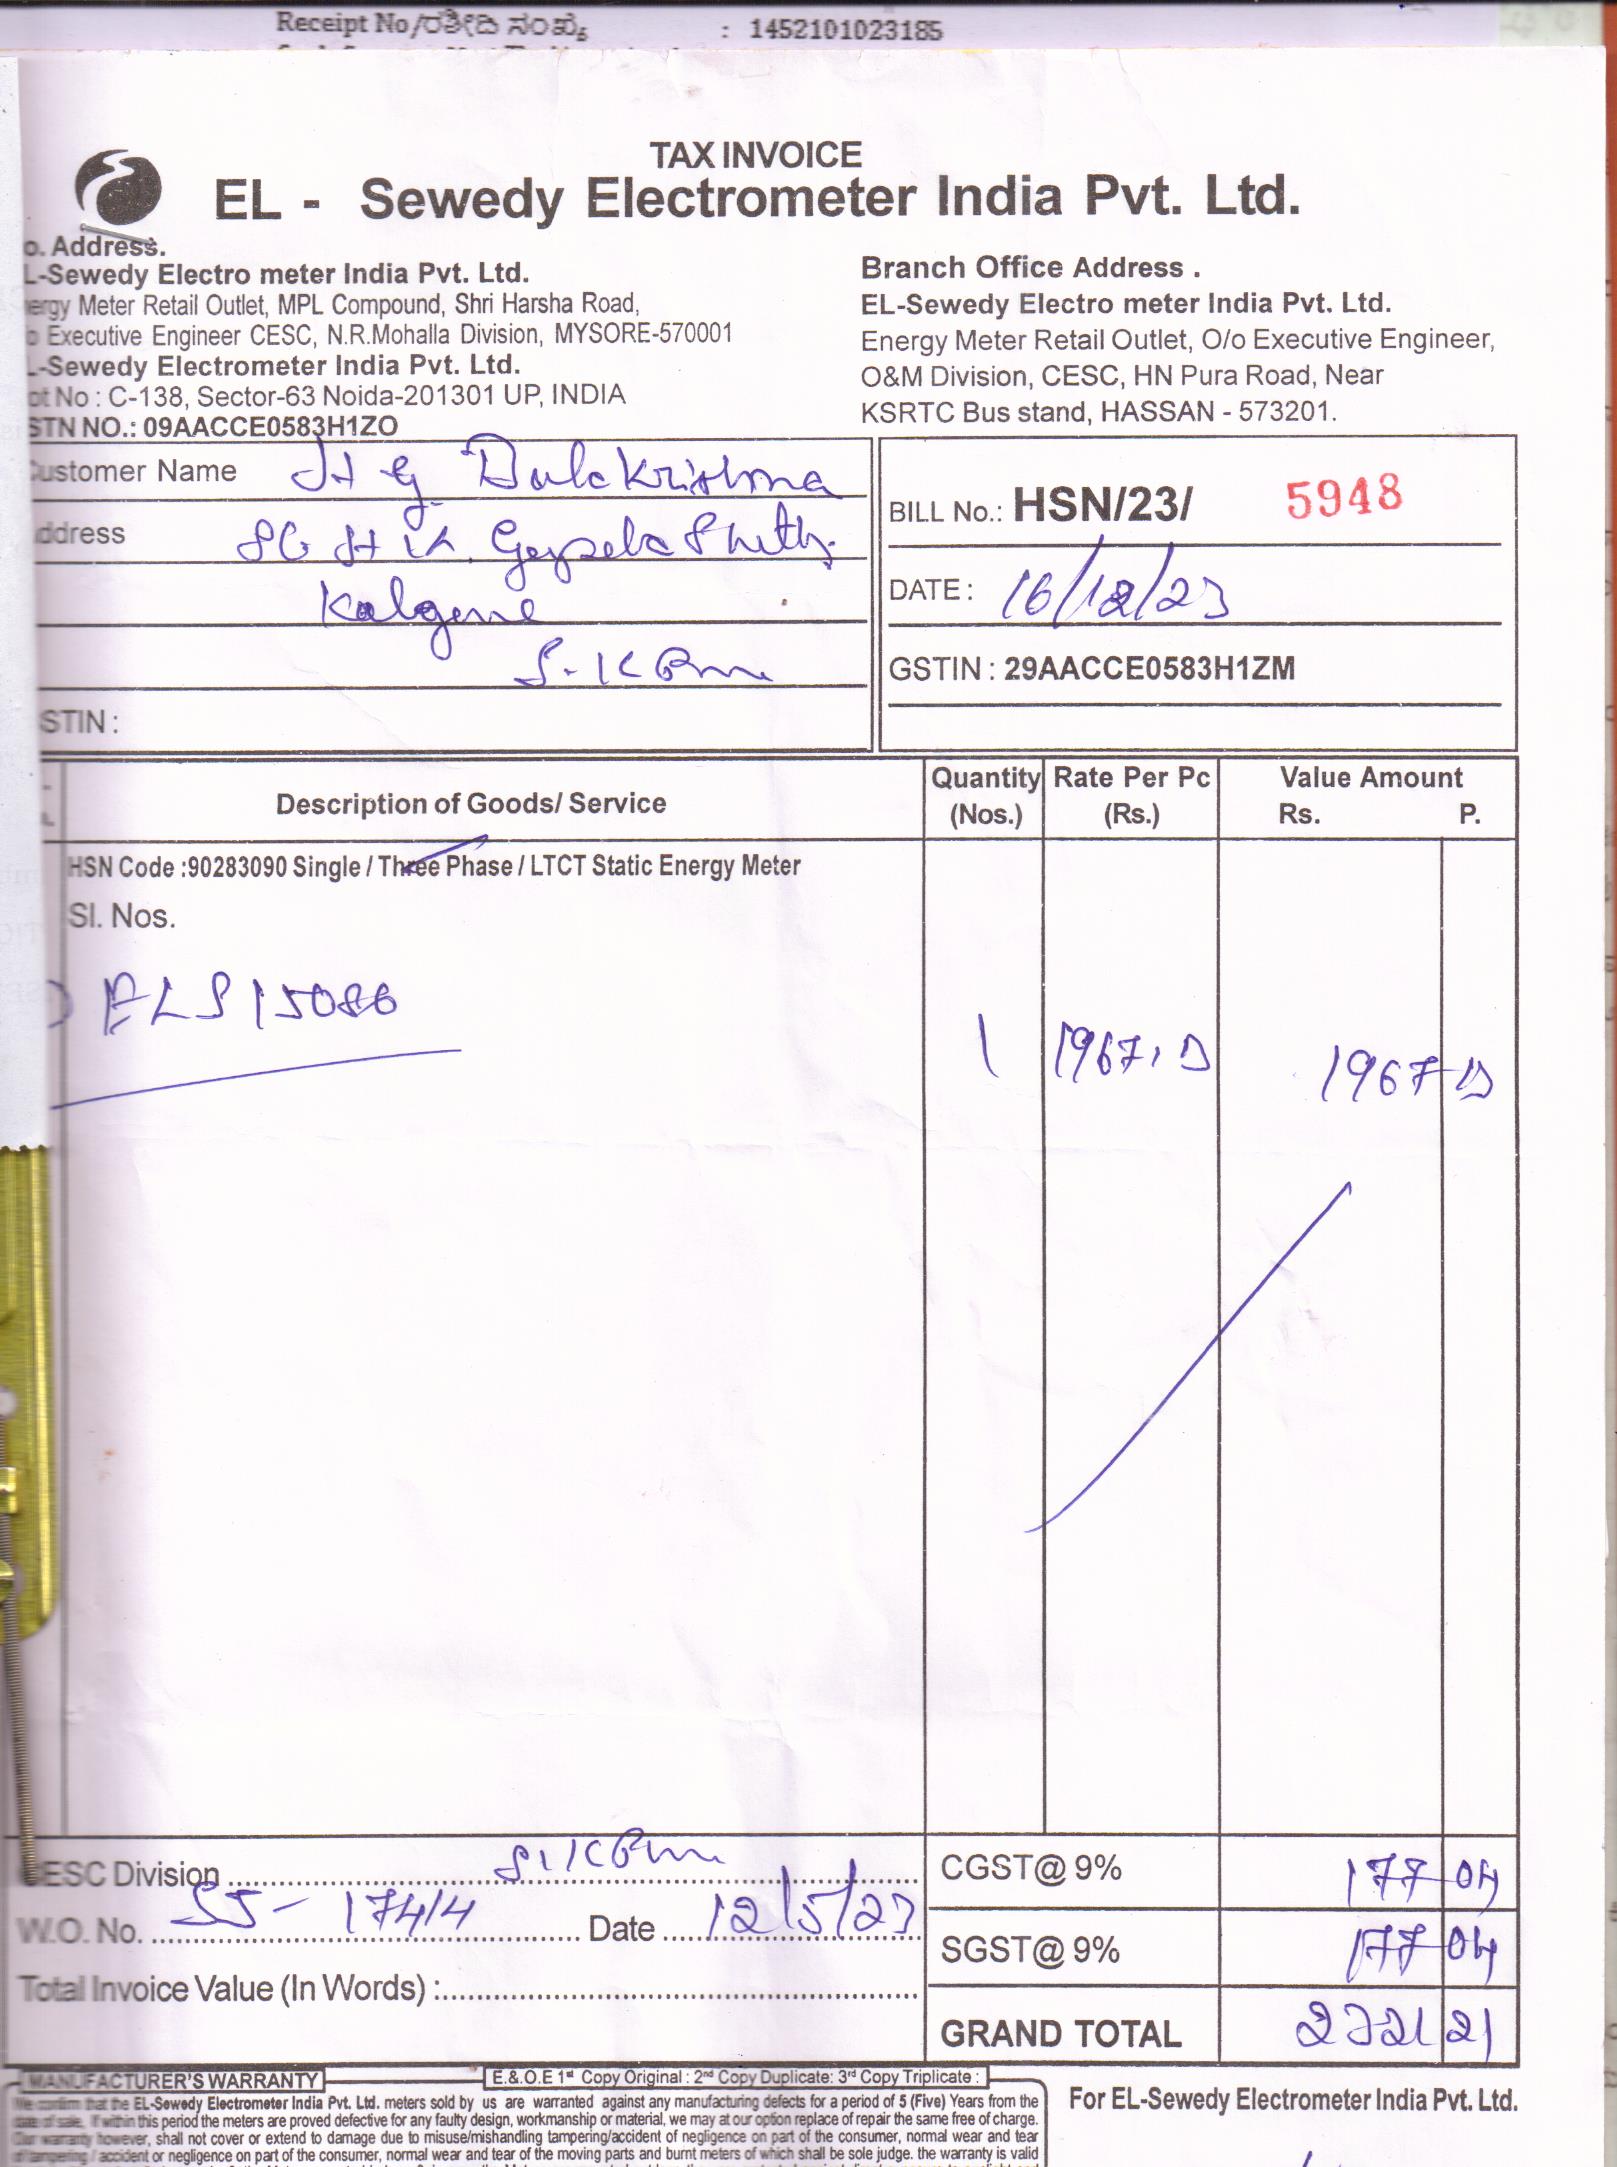 Receipt No/ರಶೀದಿ ಸಂಖ್ಯೆ : 1452101023185
TAX INVOICE
EL - Sewedy Electrometer India Pvt. Ltd.
o. Address.
L-Sewedy Electro meter India Pvt. Ltd.
ergy Meter Retail Outlet, MPL Compound, Shri Harsha Road,
o Executive Engineer CESC, N.R.Mohalla Division, MYSORE-570001
L-Sewedy Electrometer India Pvt. Ltd.
ot No : C-138, Sector-63 Noida-201301 UP, INDIA
STN NO.: 09AACCE0583H1ZO
Branch Office Address .
EL-Sewedy Electro meter India Pvt. Ltd.
Energy Meter Retail Outlet, O/o Executive Engineer,
O&M Division, CESC, HN Pura Road, Near
KSRTC Bus stand, HASSAN - 573201.
Customer Name H G Balakrishna
ddress
STIN :
BILL No.: HSN/23/ 5948
DATE : 16/12/23
GSTIN : 29AACCE0583H1ZM
Description of Goods/ Service Quantity (Nos.) Rate Per Pc (Rs.) Value Amount Rs. P.
HSN Code :90283090 Single / Three Phase / LTCT Static Energy Meter
Sl. Nos.
ELS15086 1 1967
1967
CESC Division
W.O. No. 174/4 Date 12/5/23
Total Invoice Value (In Words) :
CGST@ 9% 177 04
SGST@ 9% 177 04
GRAND TOTAL 2321 21
MANUFACTURER'S WARRANTY E.& O.E 1st Copy Original : 2nd Copy Duplicate: 3rd Copy Triplicate :
We confirm that the EL-Sewedy Electrometer India Pvt. Ltd. meters sold by us are warranted against any manufacturing defects for a period of 5 (Five) Years from the
date of sale, If within this period the meters are proved defective for any faulty design, workmanship or material, we may at our option replace of repair the same free of charge.
Our warranty however, shall not cover or extend to damage due to misuse/mishandling tampering/accident of negligence on part of the consumer, normal wear and tear
of tampering / accident or negligence on part of the consumer, normal wear and tear of the moving parts and burnt meters of which shall be sole judge. the warranty is valid
For EL-Sewedy Electrometer India Pvt. Ltd.